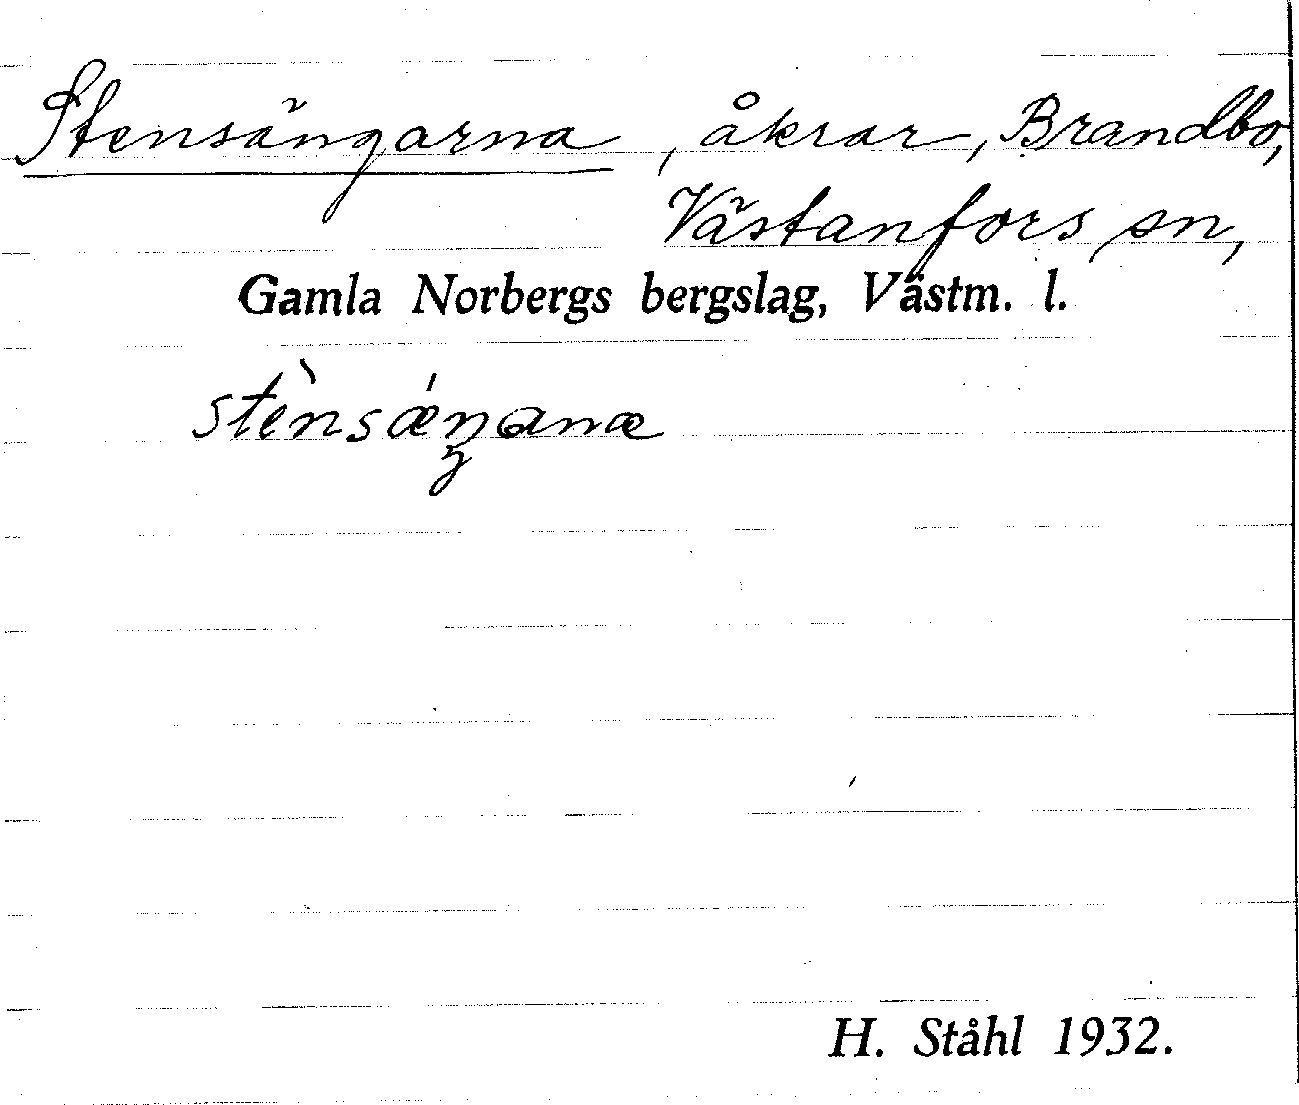 Stensängarna, åkrar, Brandbo,
Västanfors sn,
Gamla Norbergs bergslag, Västm. l.
stènsǽŋana
H. Ståhl 1932.